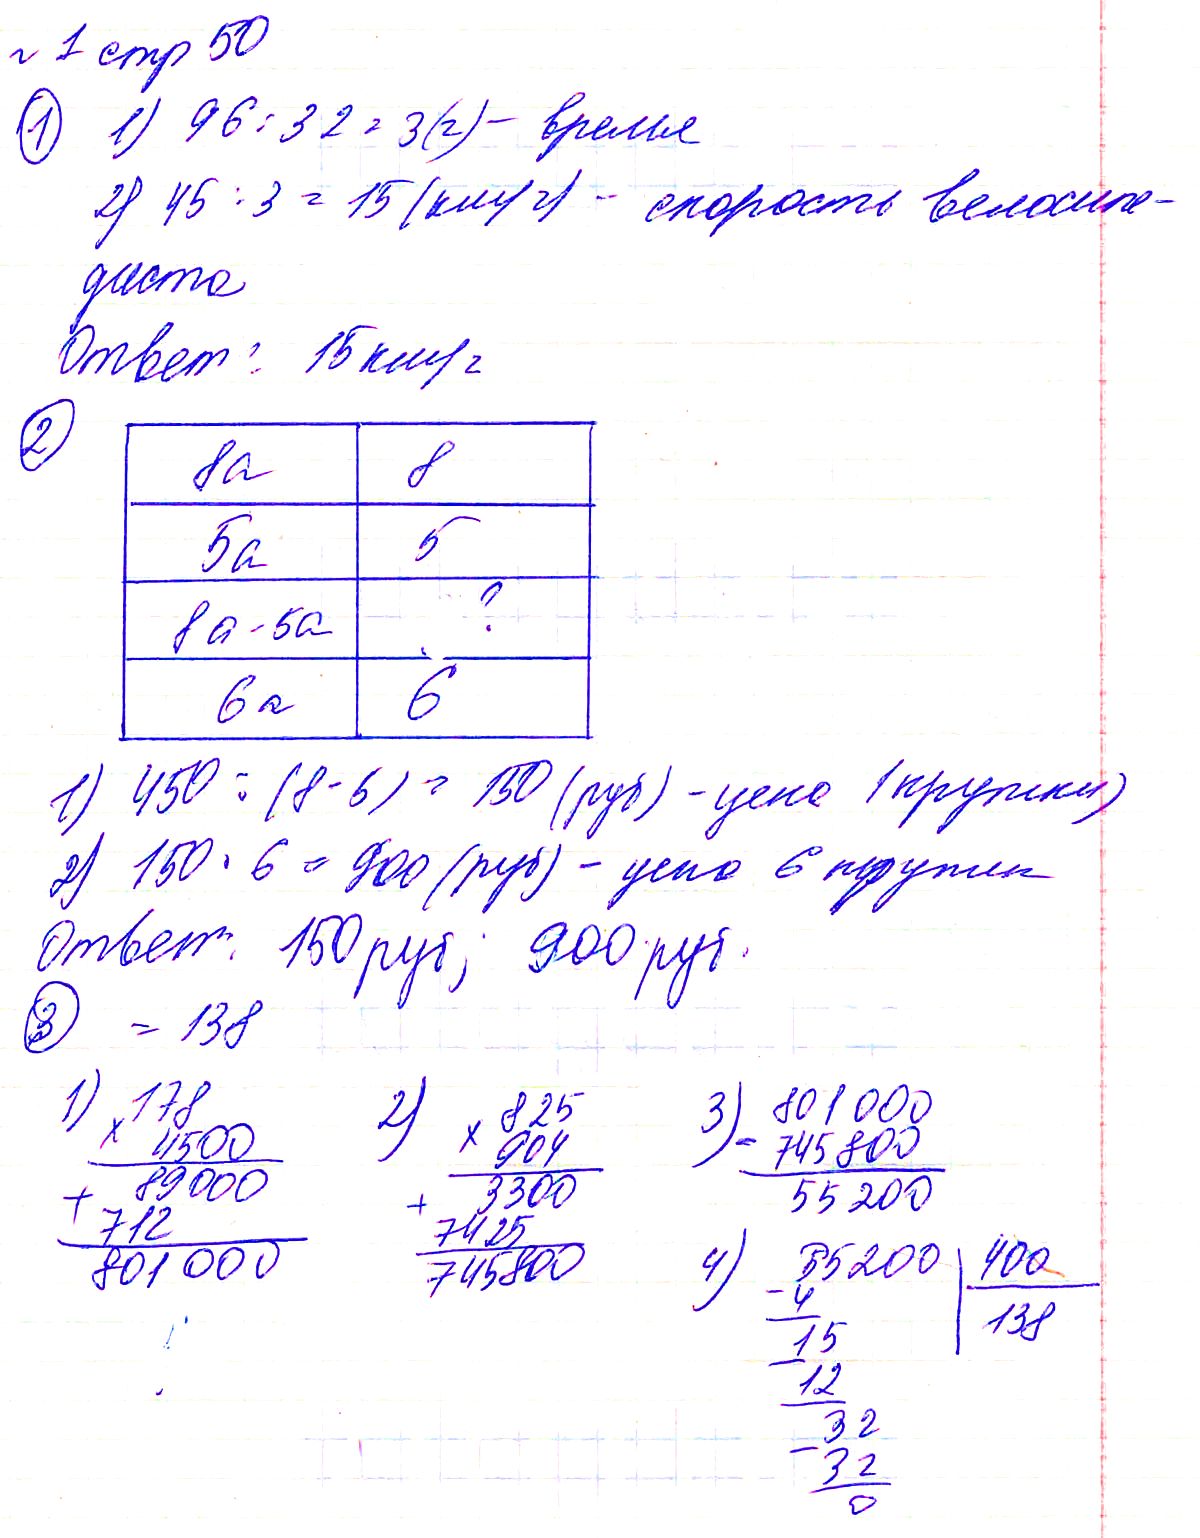 № 1 стр 50
① 1) 96 : 32 = 3(ч) – время
2) 45 : 3 = 15 (км/ч) – скорость велосипе-
диста
Ответ: 15 км/ч
②
8а 8
5а 5
8а - 5а ?
6а 6
1) 450 : (8 - 5) = 150 (руб) – цена 1 кружки)
2) 150 · 6 = 900 (руб) – цена 6 кружек
Ответ: 150 руб; 900 руб.
③ = 138
1) 178
× 4500
89000
+ 712
801 000
2) 825
× 904
3300
+ 7425
745800
3) 801 000
- 745 800
55 200
4) 55200 400
- 4 138
15
- 12
32
- 32
0